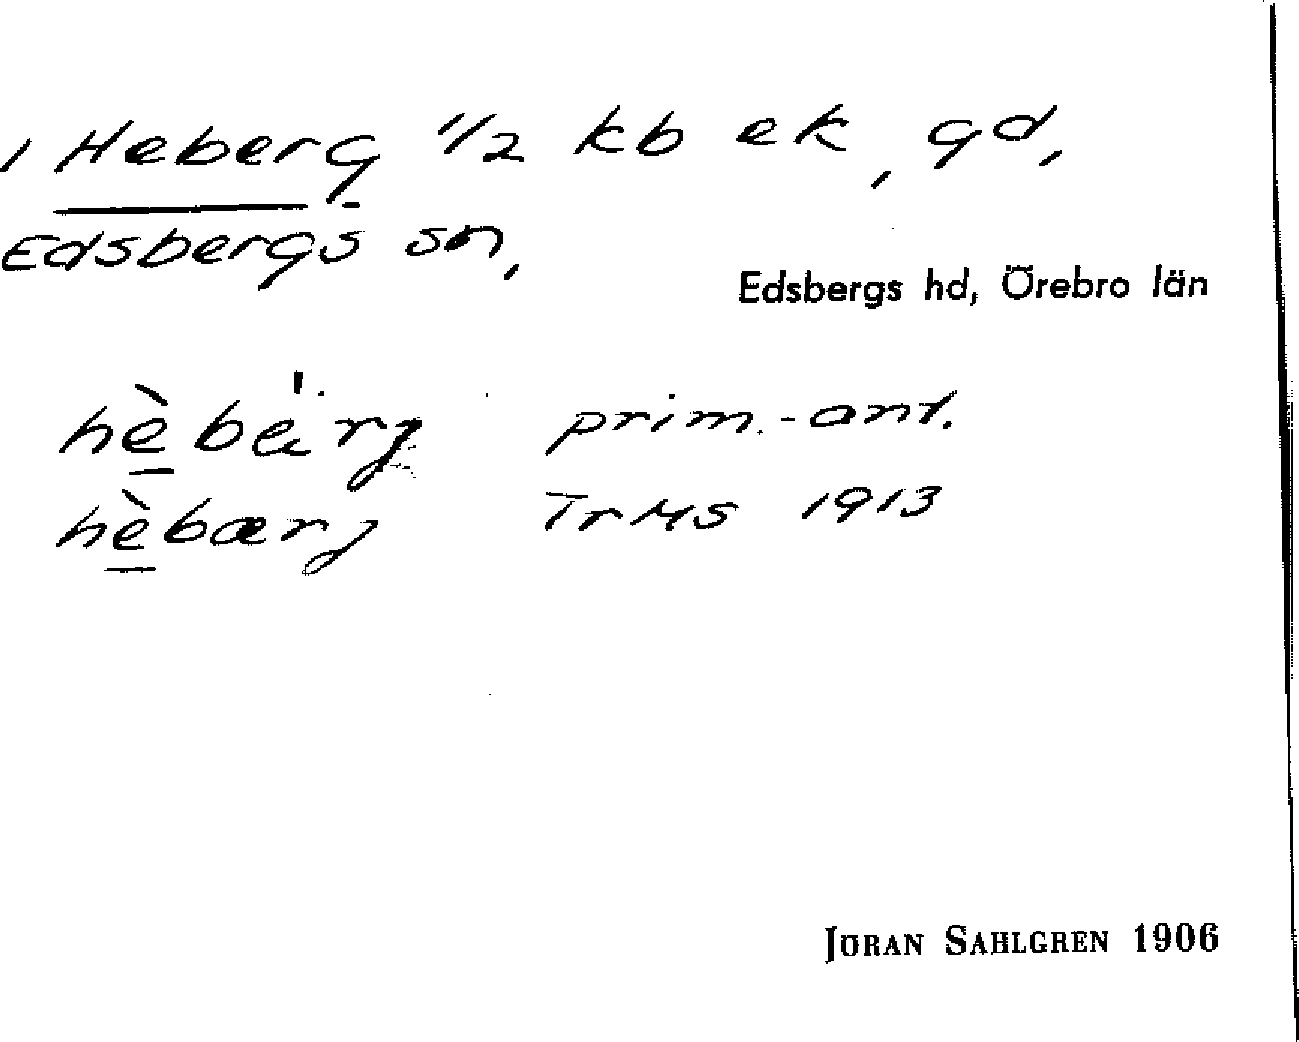 1 Heberg 1/2 kb ek, gd,
Edsbergs sn,
Edsbergs hd, Örebro län
hèbä́rg prim.-ant.
hèbærj TrHs 1913
JÖRAN SAHLGREN 1906